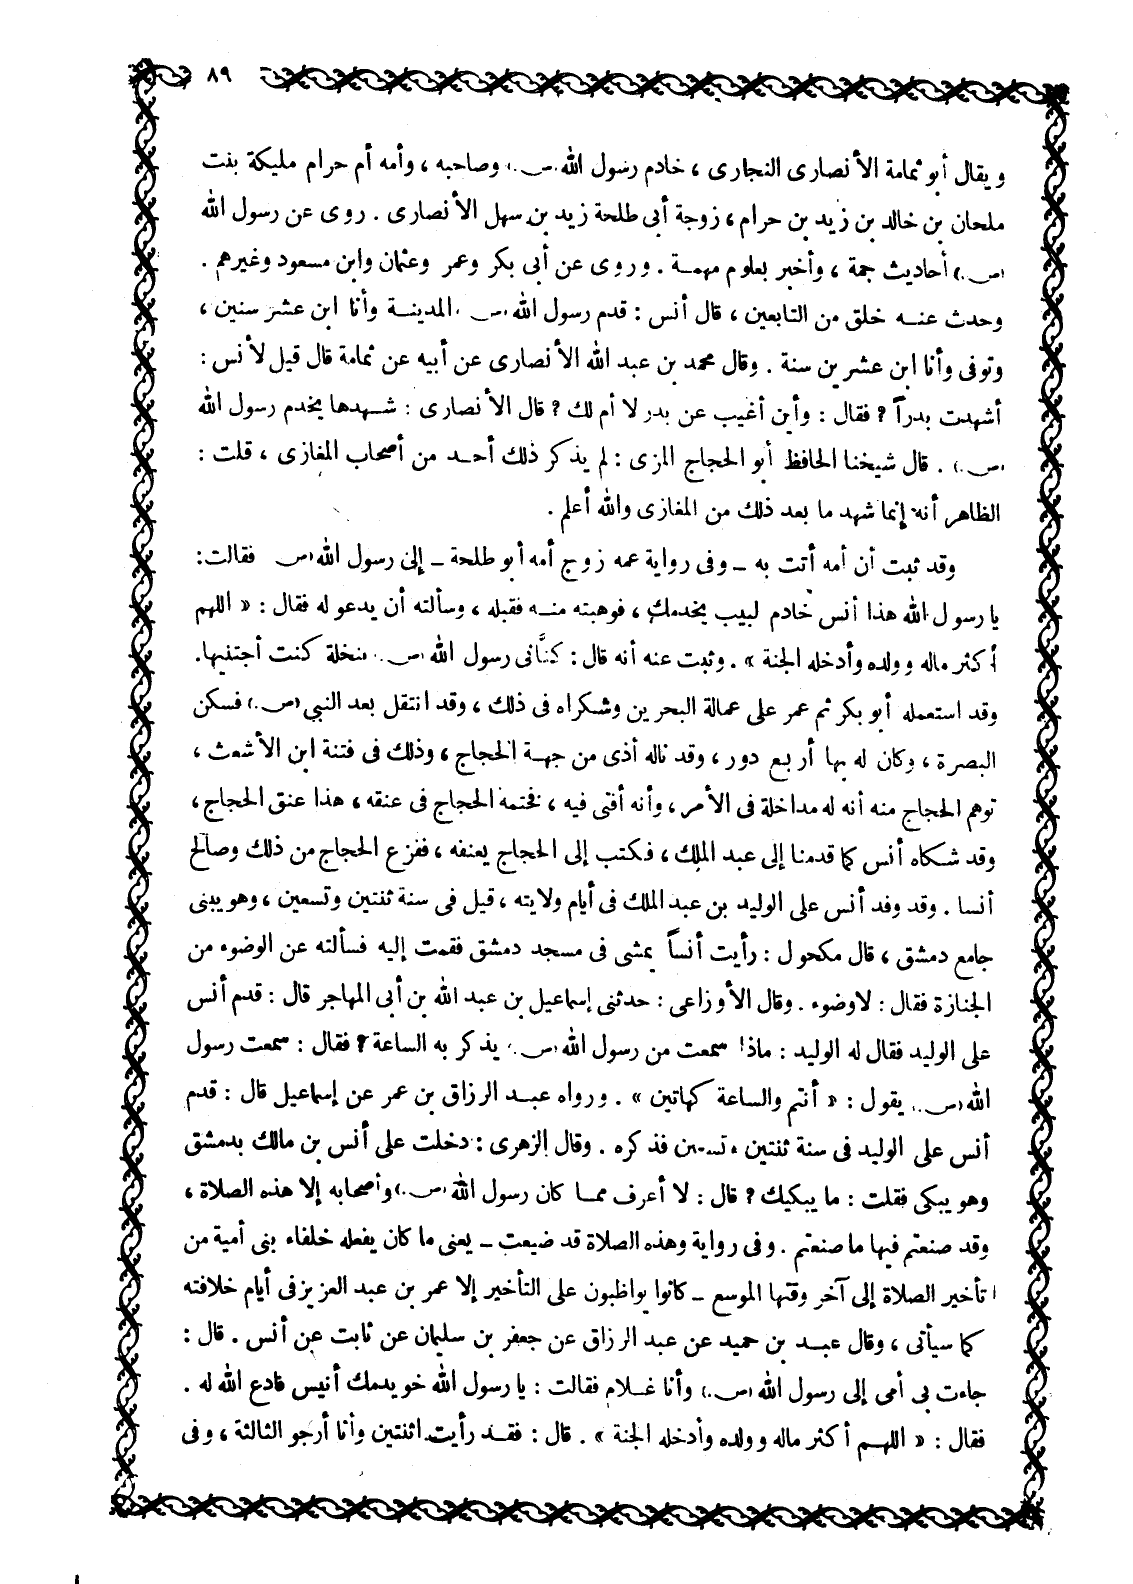 ٨٩
ويقال أبو ثمامة الأنصارى النجارى ، خادم رسول الله (ص) وصاحبه ، وأمه أم حرام مليكة بنت
ملحان بن خالد بن زيد بن حرام ، زوجة أبى طلحة زيد بن سهل الأنصارى . روى عن رسول الله
(ص) أحاديث جمة ، وأخبر بعلوم مهمة . وروى عن أبى بكر وعمر وعثمان وابن مسعود وغيرهم .
وحدث عنه خلق من التابعين ، قال أنس : قدم رسول الله (ص) المدينة وأنا ابن عشر سنين ،
وتوفى وأنا ابن عشرين سنة . وقال محمد بن عبد الله الأنصارى عن أبيه عن ثمامة قال قيل لأنس :
أشهدت بدراً ؟ فقال : وأين أغيب عن بدر لا أم لك ؟ قال الأنصارى : شهدها يخدم رسول الله
(ص) . قال شيخنا الحافظ أبو الحجاج المزى : لم يذكر ذلك أحد من أصحاب المغازى ، قلت :
الظاهر أنه إنما شهد ما بعد ذلك من المغازى والله أعلم .
وقد ثبت أن أمه أتت به ــ وفى رواية عمه زوج أمه أبو طلحة ــ إلى رسول الله (ص) فقالت:
يا رسول الله هذا أنس خادم لبيب يخدمك ، فوهبته منه فقبله ، وسألته أن يدعو له فقال : « اللهم
أكثر ماله وولده وأدخله الجنة » . وثبت عنه أنه قال : كنَّانى رسول الله (ص) بنخلة كنت أجتنيها.
وقد استعمله أبو بكر ثم عمر على عمالة البحرين وشكراه فى ذلك ، وقد انتقل بعد النبي (ص) فسكن
البصرة ، وكان له بها أربع دور ، وقد ناله أذى من جهة الحجاج ، وذلك فى فتنة ابن الأشعث ،
توهم الحجاج منه أنه له مداخلة فى الأمر ، وأنه أفتى فيه ، فختمه الحجاج فى عنقه ، هذا عنق الحجاج ،
وقد شكاه أنس كما قدمنا إلى عبد الملك ، فكتب إلى الحجاج يعنفه ، ففزع الحجاج من ذلك وصالح
أنسا . وقد وفد أنس على الوليد بن عبد الملك فى أيام ولايته ، قيل فى سنة ثنتين وتسعين ، وهو يبنى
جامع دمشق ، قال مكحول : رأيت أنساً يمشى فى مسجد دمشق فقمت إليه فسألته عن الوضوء من
الجنازة فقال : لا وضوء . وقال الأوزاعى : حدثنى إسماعيل بن عبد الله بن أبى المهاجر قال : قدم أنس
على الوليد فقال له الوليد : ماذا سمعت من رسول الله (ص) يذكر به الساعة ؟ فقال : سمعت رسول
الله (ص) يقول : « أنتم والساعة كهاتين » . ورواه عبد الرزاق بن عمر عن إسماعيل قال : قدم
أنس على الوليد فى سنة ثنتين وتسعين فذكره . وقال الزهرى : دخلت على أنس بن مالك بدمشق
وهو يبكى فقلت : ما يبكيك ؟ قال : لا أعرف مما كان رسول الله (ص) وأصحابه إلا هذه الصلاة ،
وقد صنعتم فيها ما صنعتم . وفى رواية وهذه الصلاة قد ضيعت ــ يعنى ما كان يفعله خلفاء بنى أمية من
تأخير الصلاة إلى آخر وقتها الموسع ــ كانوا يواظبون على التأخير إلا عمر بن عبد العزيز فى أيام خلافته
كما سيأتى ، وقال عبد بن حميد عن عبد الرزاق عن جعفر بن سليمان عن ثابت عن أنس . قال :
جاءت بى أمى إلى رسول الله (ص) وأنا غلام فقالت : يا رسول الله خويدمك أنيس فادع الله له .
فقال : « اللهم أكثر ماله وولده وأدخله الجنة » . قال : فقد رأيت اثنتين وأنا أرجو الثالثة ، وفى